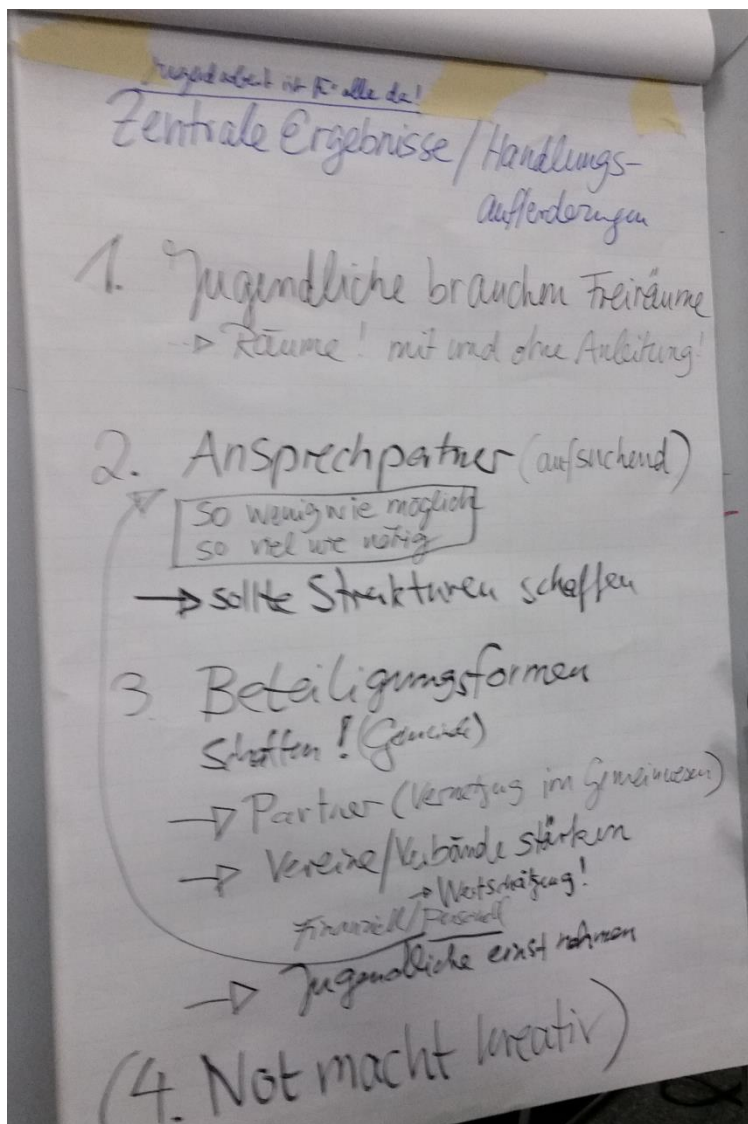 Jugendarbeit ist für alle da!
Zentrale Ergebnisse / Handlungs-
aufforderungen
1. Jugendliche brauchen Freiräume
→ Räume! mit und ohne Anleitung!
2. Ansprechpartner (aufsuchend)
So wenig wie möglich
so viel wie nötig
→ sollte Strukturen schaffen
3 Beteiligungsformen
schaffen! (Gemeinde)
→ Partner (Vernetzung im Gemeinwesen)
→ Vereine/Verbände stärken
→ Wertschätzung!
Finanziell/Personell
→ Jugendliche ernst nehmen
(4. Not macht kreativ)